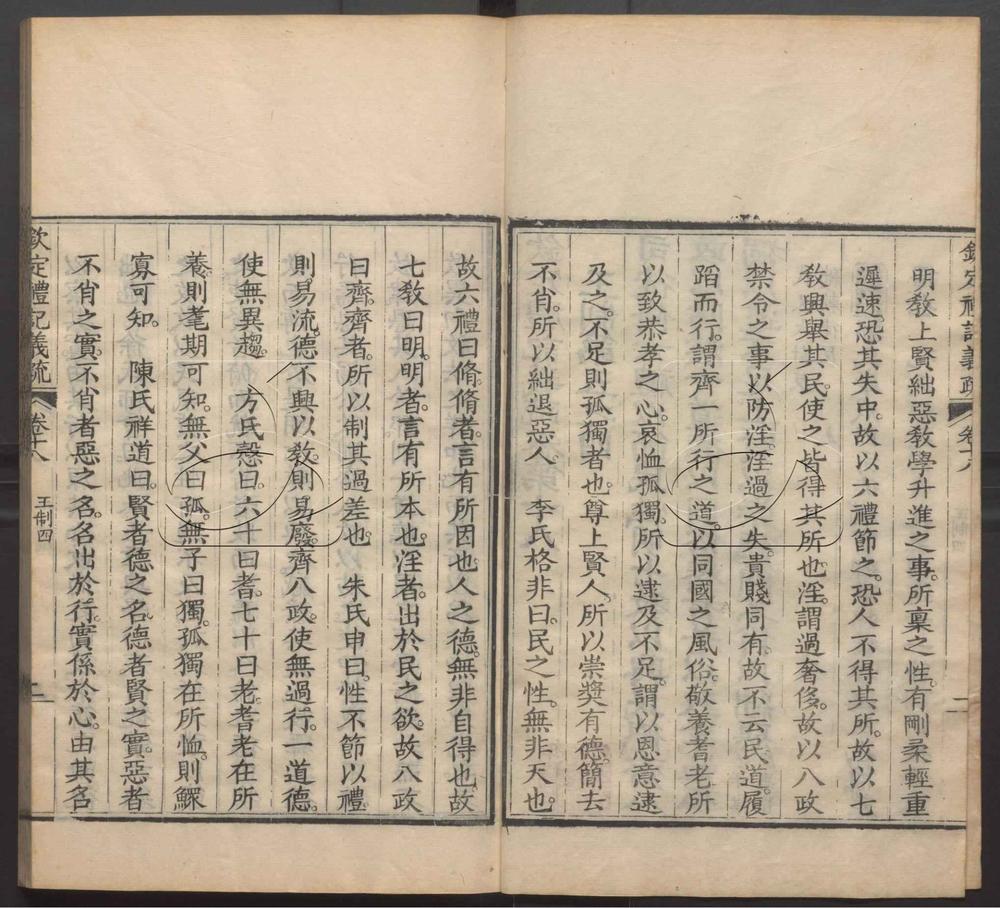 欽定禮記義疏 卷十八 二
明敎上賢絀惡敎學升進之事所稟之性有剛柔輕重
遲速恐其失中故以六禮節之恐人不得其所故以七
敎興舉其民使之皆得其所也淫謂過奢侈故以八政
禁令之事以防淫淫過之失貴賤同有故不云民道履
蹈而行謂齊一所行之道以同國之風俗敬養耆老所
以致恭孝之心哀恤孤獨所以逮及不足謂以恩意逮
及之不足則孤獨者也尊上賢人所以崇獎有德簡去
不肖所以絀退惡人 李氏格非曰民之性無非天也
故六禮曰脩脩者言有所因也人之德無非自得也故
七敎曰明明者言有所本也淫者出於民之欲故八政
曰齊齊者所以制其過差也 朱氏申曰性不節以禮
則易流德不興以敎則易廢齊八政使無過行一道德
使無異趨 方氏慤曰六十曰耆七十曰老耆老在所
養則耄期可知無父曰孤無子曰獨孤獨在所恤則鰥
寡可知 陳氏祥道曰賢者德之名德者賢之實惡者
不肖之實不肖者惡之名名出於行實係於心由其名
欽定禮記義疏 卷十八 王制四 二